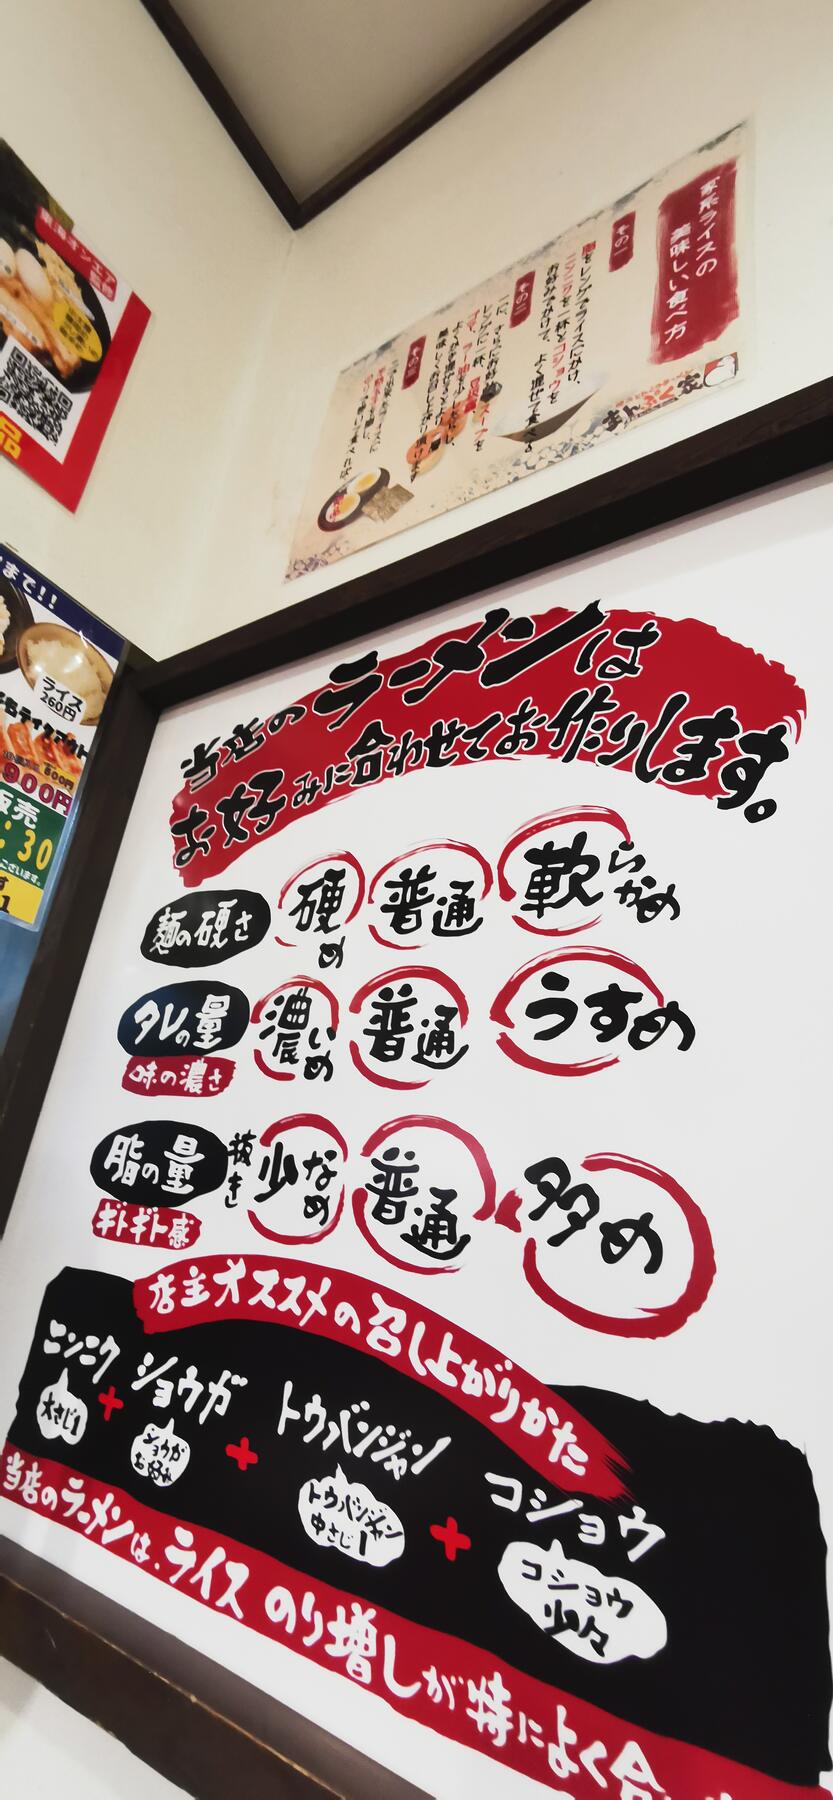 家系ライスの
美味しい食べ方
その一
お好みでかけて、よく混ぜて食べる
その二
その三
東海オンエア
監修
品
まで!!
ライス
260円
900円
販売
:30
当店のラーメンは
お好みに合わせてお作りします。
麺の硬さ 硬め 普通 軟らかめ
タレの量 濃いめ 普通 うすめ
味の濃さ
脂の量 抜き 少なめ 普通 多め
ギトギト感
店主オススメの召し上がりかた
ニンニク + ショウガ + トウバンジャン + コショウ
大さじ1
ショウガ
お好み
トウバンジャン
中さじ1
コショウ
少々
当店のラーメンは、ライス のり増しが特によく合い